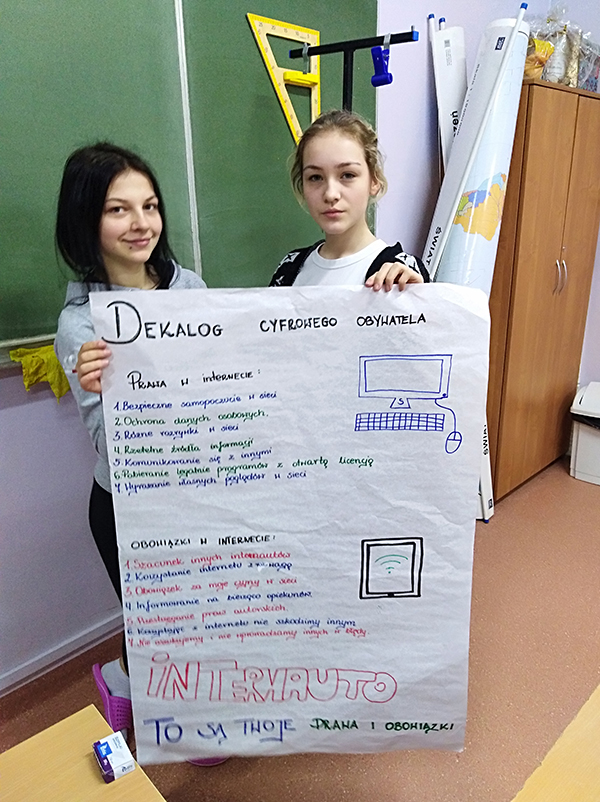 DEKALOG CYFROWEGO OBYWATELA
PRAWA W INTERNECIE:
1. Bezpieczne samopoczucie w sieci
2. Ochrona danych osobowych.
3. Różne rozrywki w sieci
4. Rzetelne źródła informacji
5. Komunikowanie się z innymi
6. Pobieranie legalnie programów z otwartą licencją
7. Wyrażanie własnych poglądów w sieci
S
OBOWIĄZKI W INTERNECIE:
1. Szacunek innych internautów
2. Korzystanie internetu z uwagą
3. Obowiązek za moje czyny w sieci
4. Informowanie na bieżąco opiekunów
5. Przestrzeganie praw autorskich.
6. Korzystając z internetu nie szkodzimy innym
7. Nie oszukujemy i nie wprowadzamy innych w błędy.
INTERNAUTO
TO SĄ TWOJE PRAWA I OBOWIĄZKI
ŚWIAT